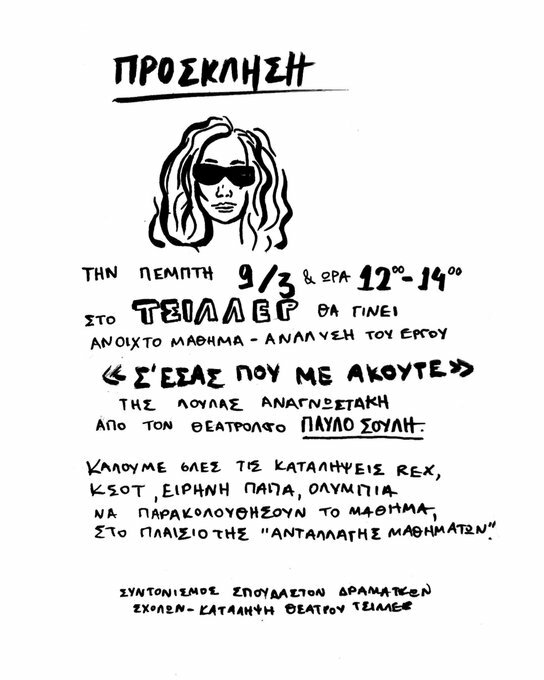 ΠΡΟΣΚΛΗΣΗ
ΤΗΝ ΠΕΜΠΤΗ 9/3 & ΩΡΑ 12⁰⁰-14⁰⁰
ΣΤΟ ΤΣΙΛΛΕΡ ΘΑ ΓΙΝΕΙ
ΑΝΟΙΧΤΟ ΜΑΘΗΜΑ - ΑΝΑΛΥΣΗ ΤΟΥ ΕΡΓΟΥ
«Σ'ΕΣΑΣ ΠΟΥ ΜΕ ΑΚΟΥΤΕ»
ΤΗΣ ΛΟΥΛΑΣ ΑΝΑΓΝΩΣΤΑΚΗ
ΑΠΟ ΤΟΝ ΘΕΑΤΡΟΛΟΓΟ ΠΑΥΛΟ ΣΟΥΛΗ.
ΚΑΛΟΥΜΕ ΟΛΕΣ ΤΙΣ ΚΑΤΑΛΗΨΕΙΣ REX,
ΚΣΟΤ, ΕΙΡΗΝΗ ΠΑΠΑ, ΟΛΥΜΠΙΑ
ΝΑ ΠΑΡΑΚΟΛΟΥΘΗΣΟΥΝ ΤΟ ΜΑΘΗΜΑ,
ΣΤΟ ΠΛΑΙΣΙΟ ΤΗΣ "ΑΝΤΑΛΛΑΓΗΣ ΜΑΘΗΜΑΤΩΝ".
ΣΥΝΤΟΝΙΣΜΟΣ ΣΠΟΥΔΑΣΤΩΝ ΔΡΑΜΑΤΙΚΩΝ
ΣΧΟΛΩΝ - ΚΑΤΑΛΗΨΗ ΘΕΑΤΡΟΥ ΤΣΙΛΛΕΡ